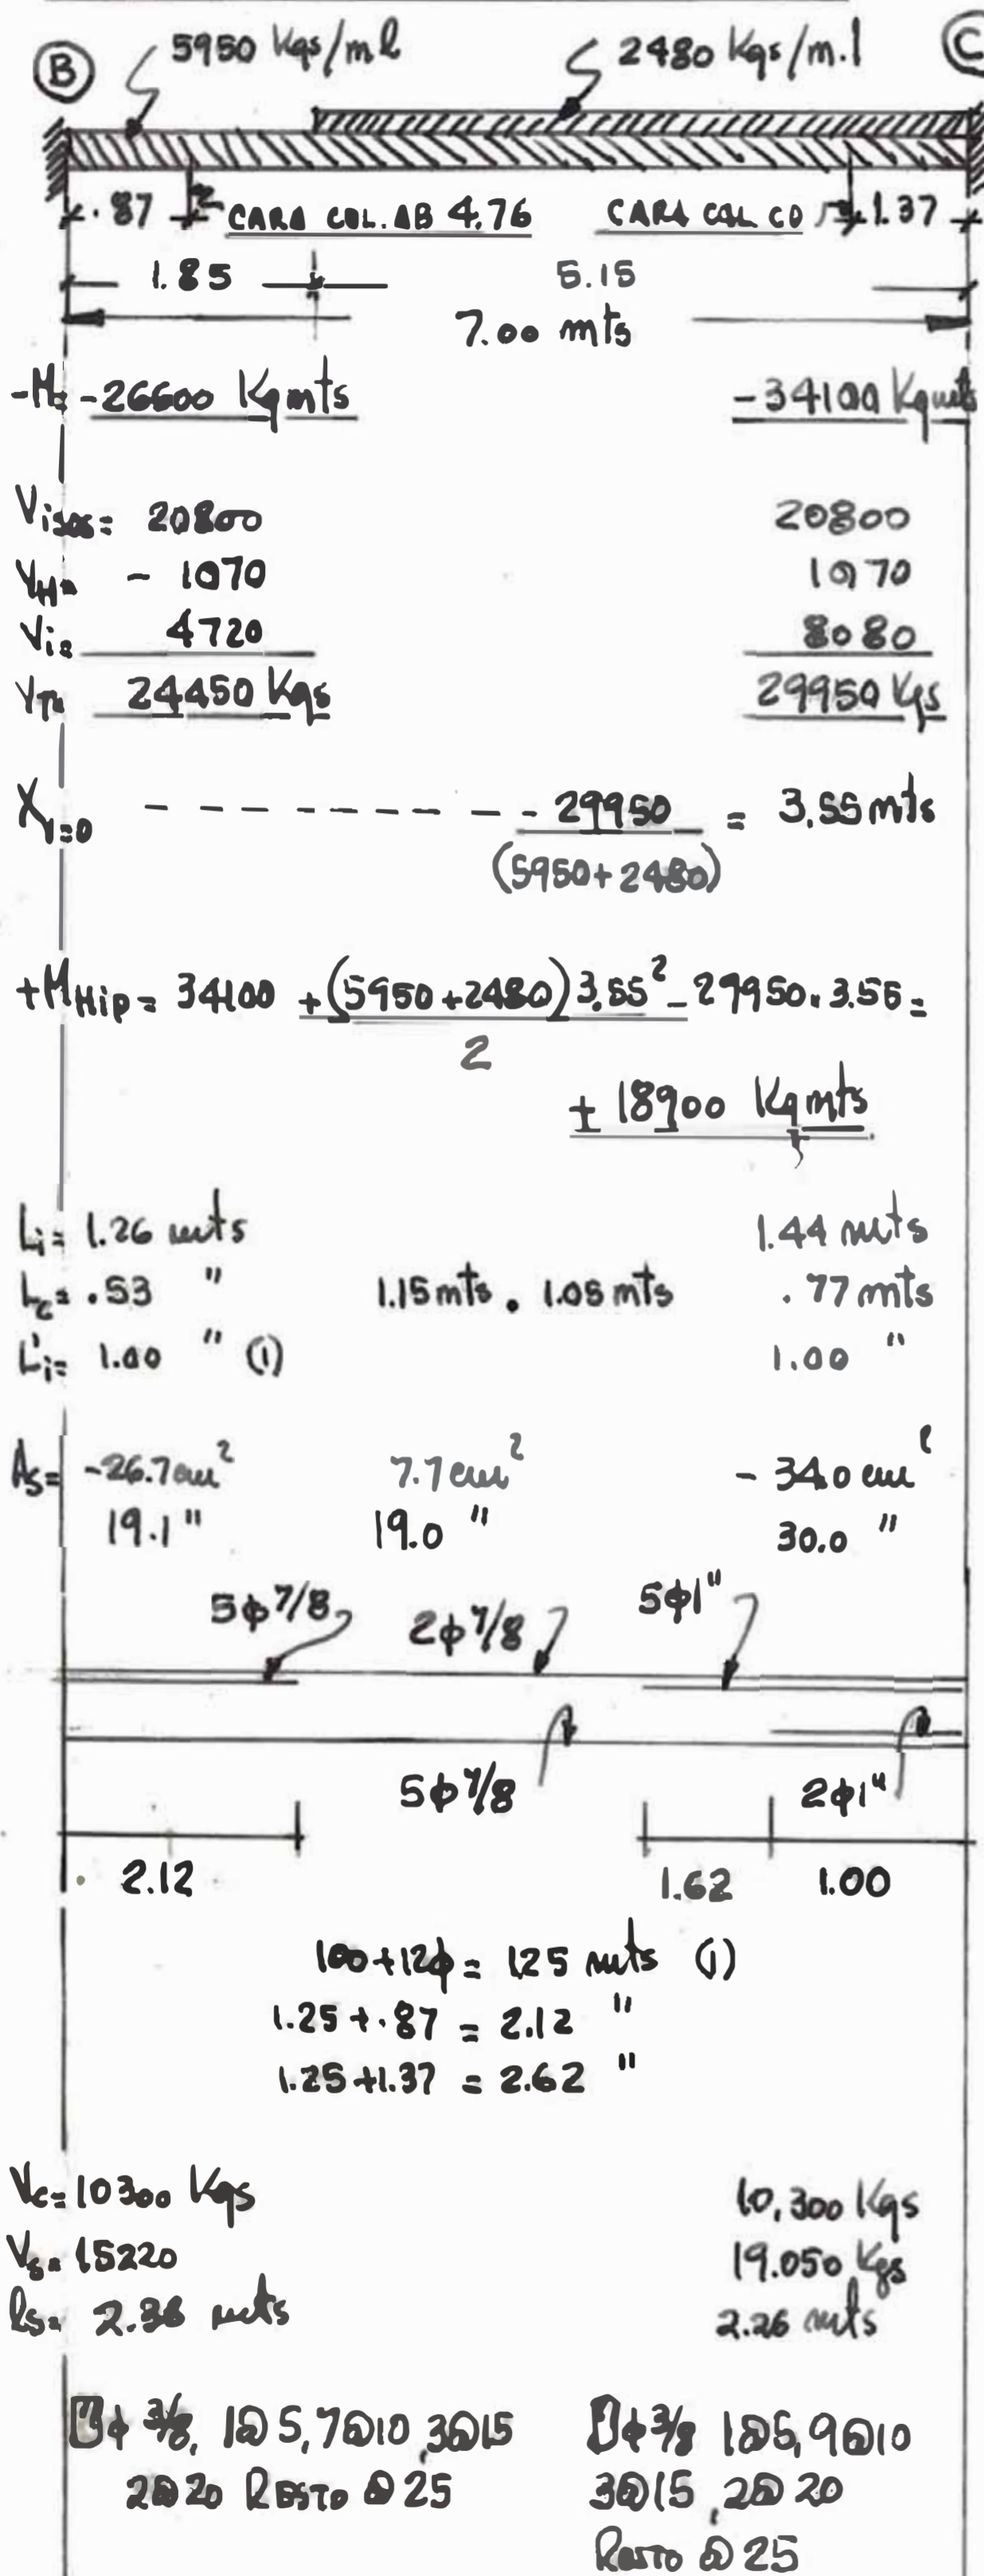 B 5950 Kgs/ml 2480 Kgs/m.l C
.87 CARA COL. AB 4.76 CARA COL CD 1.37
1.85 5.15
7.00 mts
-M= -26600 Kgmts -34100 Kgmts
Visos= 20800 20800
VH= - 1070 1070
Vi= 4720 8080
VT= 24450 Kgs 29950 Kgs
XV=0 - - - - - - - - - 29950 / (5950+2480) = 3.55 mts
+MHip= 34100 + (5950+2480) 3.55² / 2 - 29950 . 3.55 =
+ 18900 Kgmts
Li= 1.26 mts 1.44 mts
Lc= .53 " 1.15 mts . 1.05 mts .77 mts
L'i= 1.00 " (1) 1.00 "
As= -26.7 cm² 7.7 cm² - 34.0 cm²
19.1 " 19.0 " 30.0 "
5φ 7/8 2φ 7/8 5φ1"
5φ 7/8 2φ1"
2.12 1.62 1.00
100+12φ = 1.25 mts (1)
1.25+.87 = 2.12 "
1.25+1.37 = 2.62 "
Vc= 10300 Kgs 10,300 Kgs
Vs= 15220 19.050 Kgs
ls= 2.38 mts 2.26 mts
φ 3/8, 1@5, 7@10, 3@15 φ 3/8 1@5, 9@10
2@20 Resto @ 25 3@15, 2@20
Resto @ 25